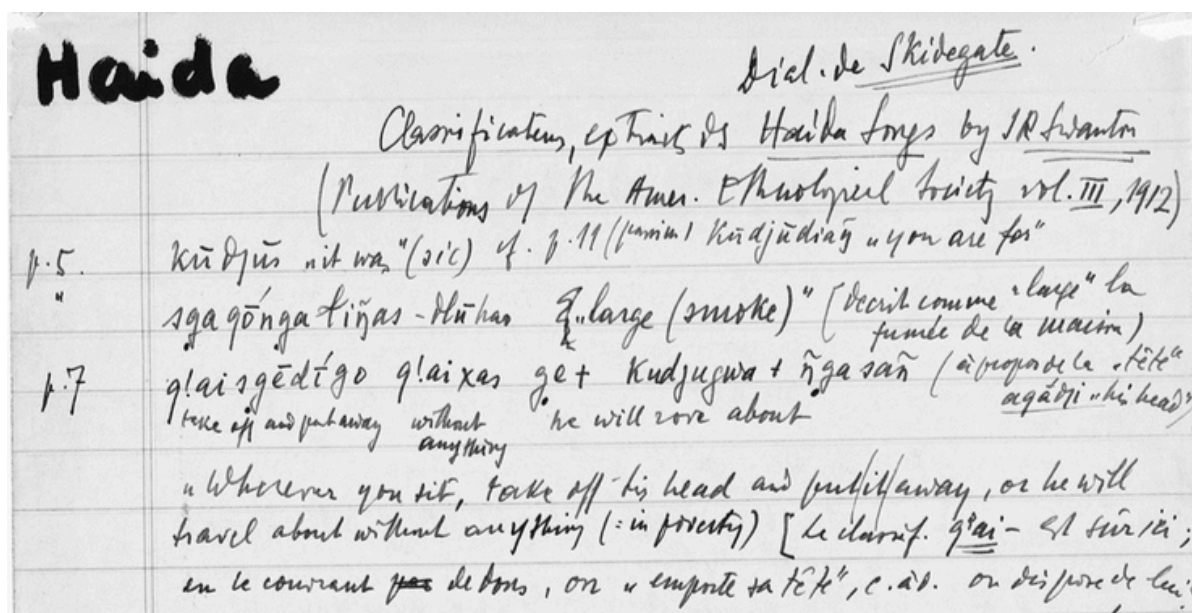 Haida
Dial. de Skidegate.
Classificateurs, extraits ds Haida Songs by J R Swanton
(Publications of the Amer. Ethnological Society vol. III, 1912)
p. 5. kūdjūs „it was" (sic) cf. p. 11 (passim) kūdjūdiañ „you are for"
" sgagṓnga łiñas - dlūhao „large (smoke)" [décrit comme „large" la
fumée de la maison)
p. 7 q!aisgēdī́go q!aixas ge + kudjugwa + ñgasañ (à propos de la „tête"
agādji „his head")
take off and put away without he will rove about
anything
„Wherever you sit, take off his head and put (it) away, or he will
travel about without anything (: in poverty) [le classif. q!ai - est sûr ici;
en le couvrant de dons, on „emporte sa tête", c. à d. on dispose de lui